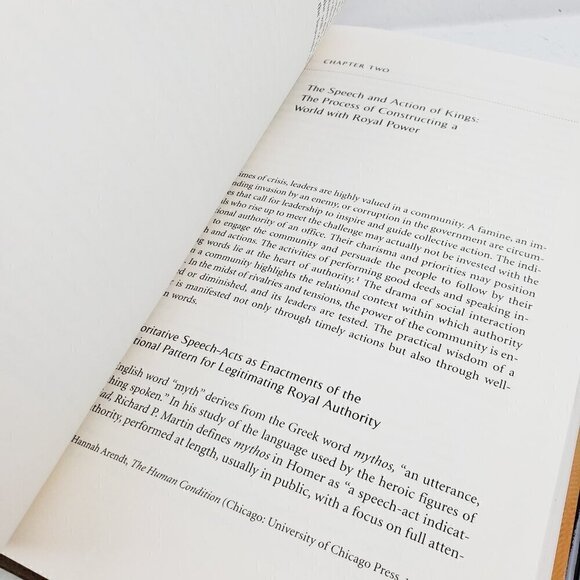 CHAPTER TWO
The Speech and Action of Kings:
The Process of Constructing a
World with Royal Power
of crisis, leaders are highly valued in a community. A famine, an im-
invasion by an enemy, or corruption in the government are circum-
that call for leadership to inspire and guide collective action. The indi-
who rise up to meet the challenge may actually not be invested with the
authority of an office. Their charisma and priorities may position
to engage the community and persuade the people to follow by their
and actions. The activities of performing good deeds and speaking in-
words lie at the heart of authority.¹ The drama of social interaction
a community highlights the relational context within which authority
In the midst of rivalries and tensions, the power of the community is en-
or diminished, and its leaders are tested. The practical wisdom of a
is manifested not only through timely actions but also through well-
words.
Speech-Acts as Enactments of the
Pattern for Legitimating Royal Authority
English word “myth” derives from the Greek word mythos, “an utterance,
spoken.” In his study of the language used by the heroic figures of
Richard P. Martin defines mythos in Homer as “a speech-act indicat-
performed at length, usually in public, with a focus on full atten-
Hannah Arendt, The Human Condition (Chicago: University of Chicago Press,